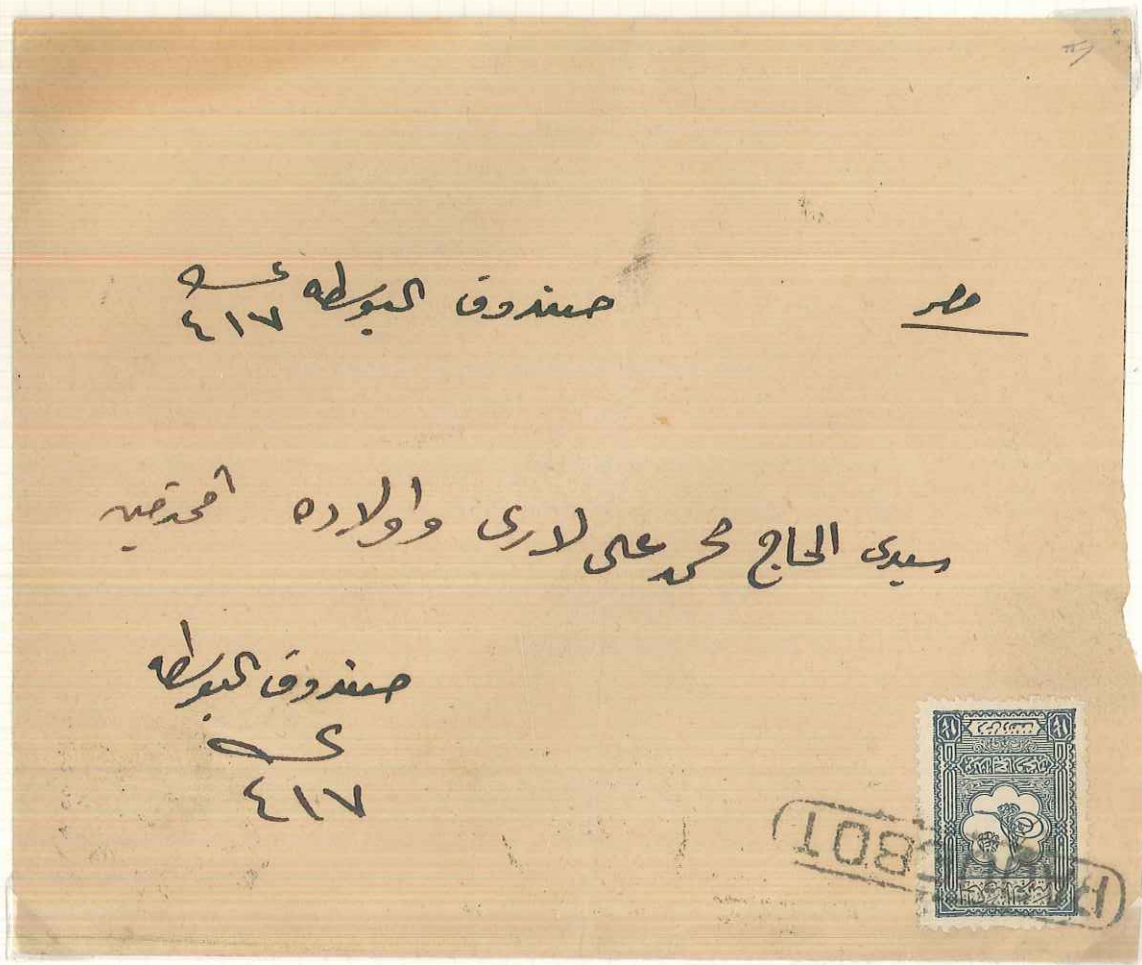 مصر صندوق البوسطه نمـرة ٤١٧
سيدى الحاج محمد على لارى واولاده المحترمين
صندوق البوسطه
نمـرة
٤١٧
PAQUEBOT